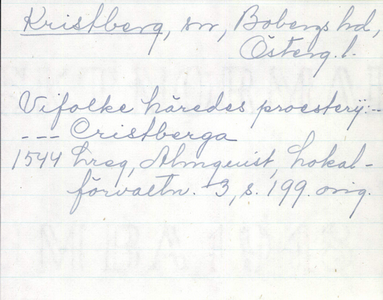 Kristberg, sn, Bobergs hd,
Österg. l.
Vifolke häredes proestery:--
--- Cristberga
1544 hreg, Almquist, Lokal-
förvaltn. 3, s. 199. orig.